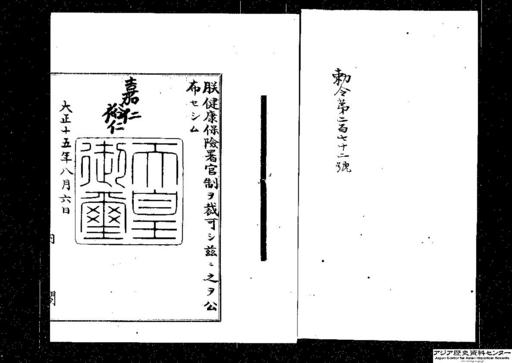 勅令第二百七十二號
朕健康保險署官制ヲ裁可シ茲ニ之ヲ公
布セシム
嘉仁
裕仁
天皇
御璽
大正十五年八月六日
内閣
アジア歴史資料センター
Japan Center for Asian Historical Records